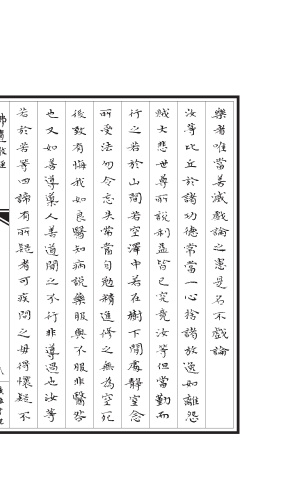 樂者唯當善滅戲論之患是名不戲論
汝等比丘於諸功德常當一心捨諸放逸如離怨
賊大悲世尊所說利益皆已究竟汝等但當勤而
行之若於山間若空澤中若在樹下閒處靜室念
所受法勿令忘失常當自勉精進修之無為空死
後致有悔我如良醫知病說藥服與不服非醫咎
也又如善導導人善道聞之不行非導過也汝等
若於苦等四諦有所疑者可疾問之毋得懷疑不
佛遺教經
八